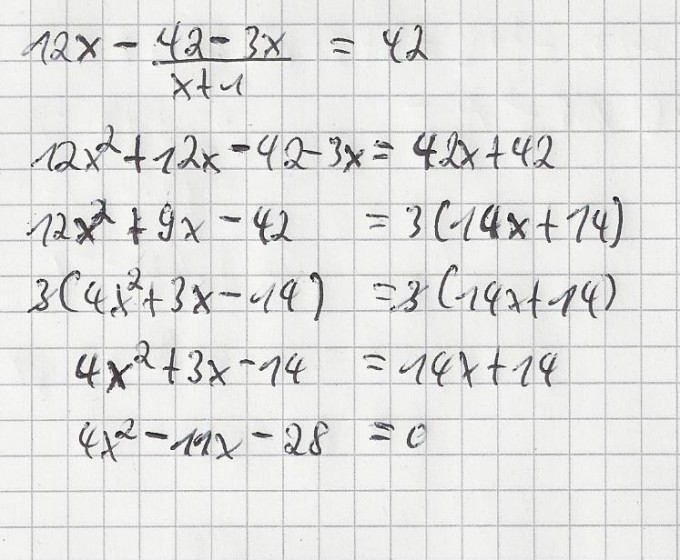 12x - (42 - 3x)/(x + 1) = 42
12x² + 12x - 42 - 3x = 42x + 42
12x² + 9x - 42 = 3(14x + 14)
3(4x² + 3x - 14) = 3(14x + 14)
4x² + 3x - 14 = 14x + 14
4x² - 11x - 28 = 0